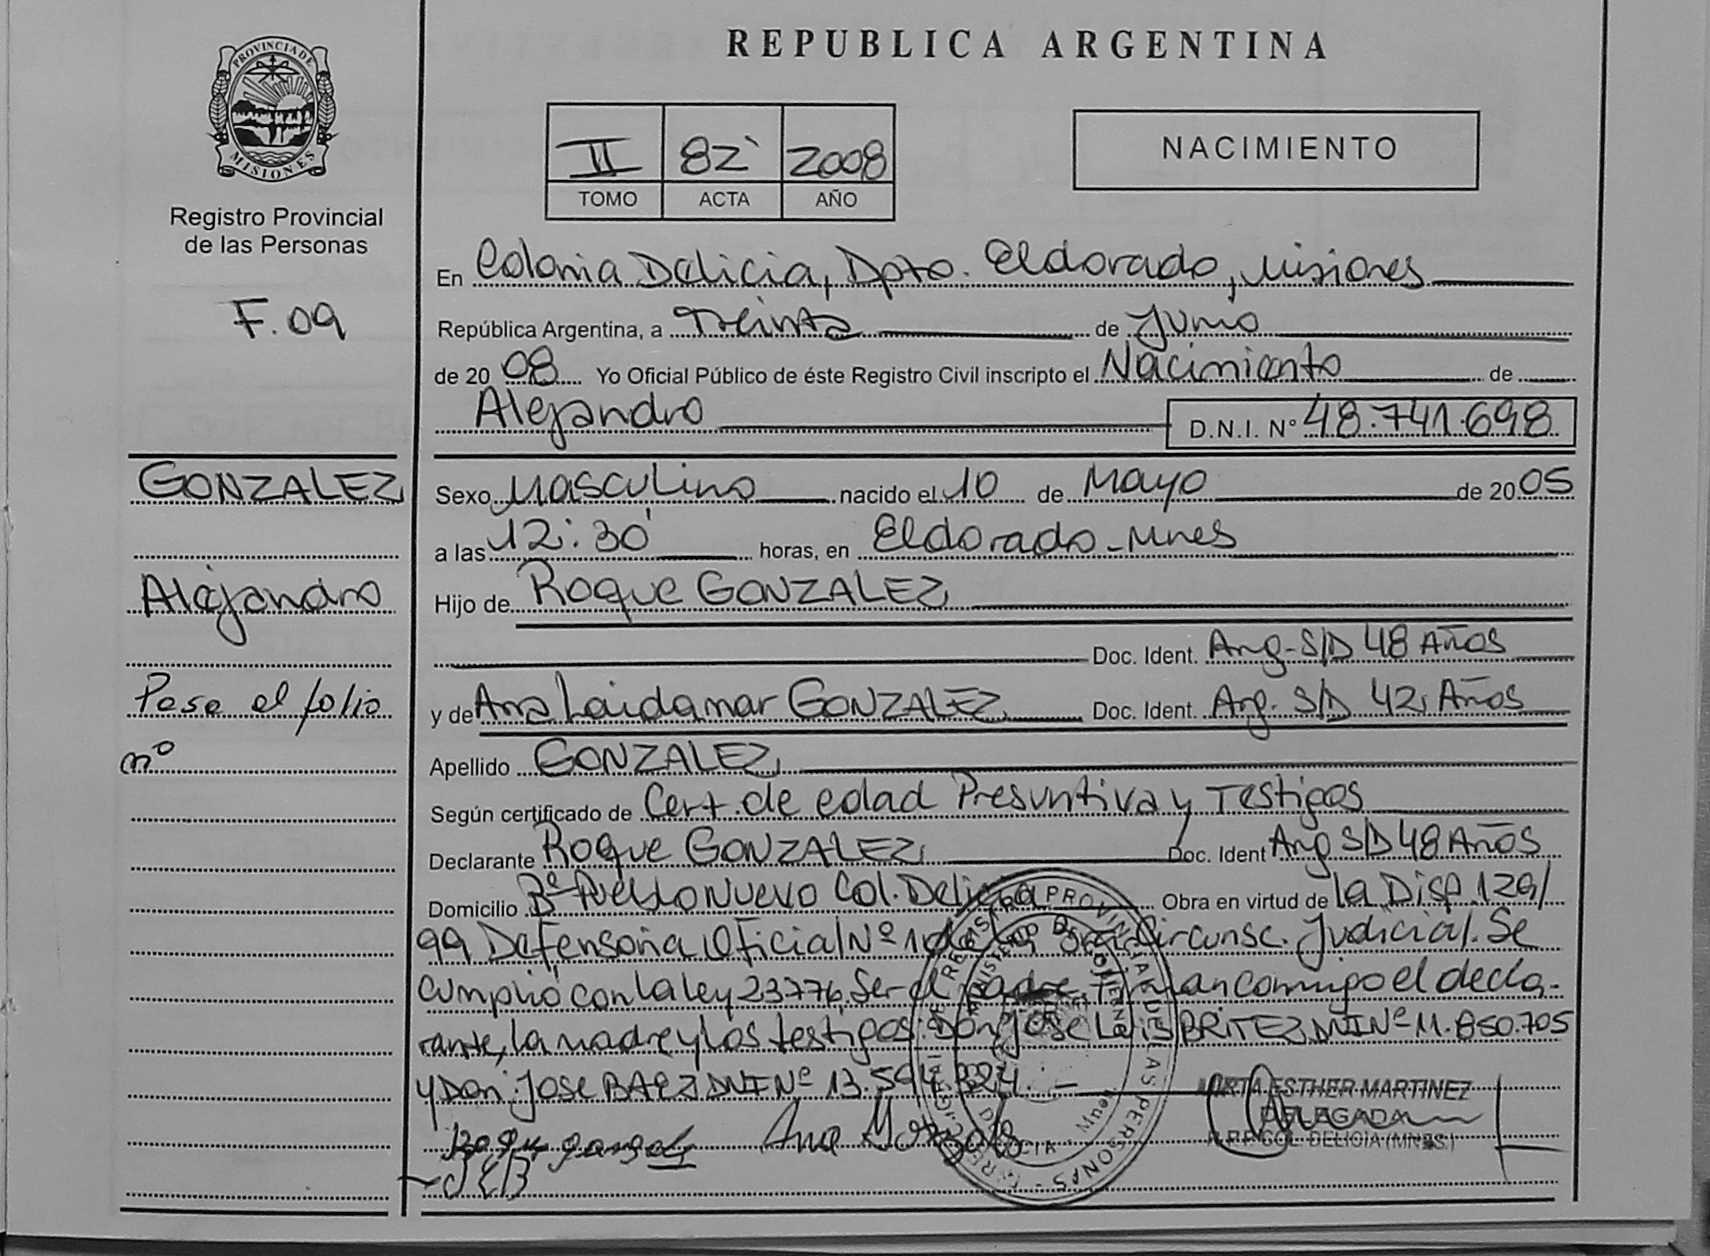 REPUBLICA ARGENTINA
PROVINCIA DE MISIONES
Registro Provincial
de las Personas
F.09
II 82 2008
TOMO ACTA AÑO
NACIMIENTO
En Colonia Delicia, Dpto. Eldorado, Misiones
República Argentina, a Treinta de Junio
de 2008 Yo Oficial Público de éste Registro Civil inscripto el Nacimiento de
Alejandro D.N.I. Nº 48.741.698
GONZALEZ
Alejandro
Pase al folio
nº
Sexo Masculino nacido el 10 de Mayo de 2005
a las 12:30 horas, en Eldorado-Mnes
Hijo de Roque GONZALEZ
Doc. Ident. Arg-S/D 48 Años
y de Ana Laidamar GONZALEZ Doc. Ident. Arg. S/D 42 Años
Apellido GONZALEZ
Según certificado de Cert. de edad Presuntiva y Testigos
Declarante Roque GONZALEZ Doc. Ident Arg S/D 48 Años
Domicilio Bº Pueblo Nuevo Col. Delicia Obra en virtud de la Disp. 129/
99 Defensoria Oficial Nº 1 de la 3ra Circunsc. Judicial. Se
cumplió con la ley 23776. Ser el padre. Firman comigo el decla-
rante, la madre y los testigos: Don Jose Luis BRITEZ MI Nº 11.850.705
y Don: Jose BAEZ DNI Nº 13.594.324.-
MIRTA ESTHER MARTINEZ
DELEGADA
R.P.P. COL. DELICIA (MNES.)